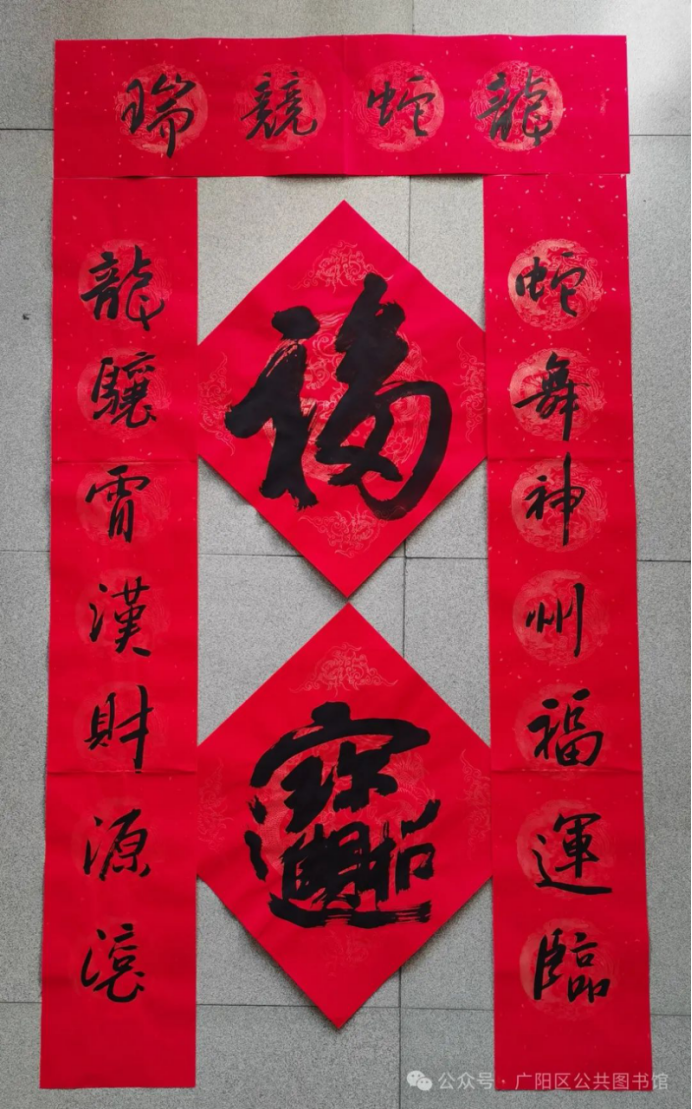 龍蛇競瑞
蛇舞神州福運臨
龍驤霄漢財源滾
福
招財進寶
公众号·广阳区公共图书馆